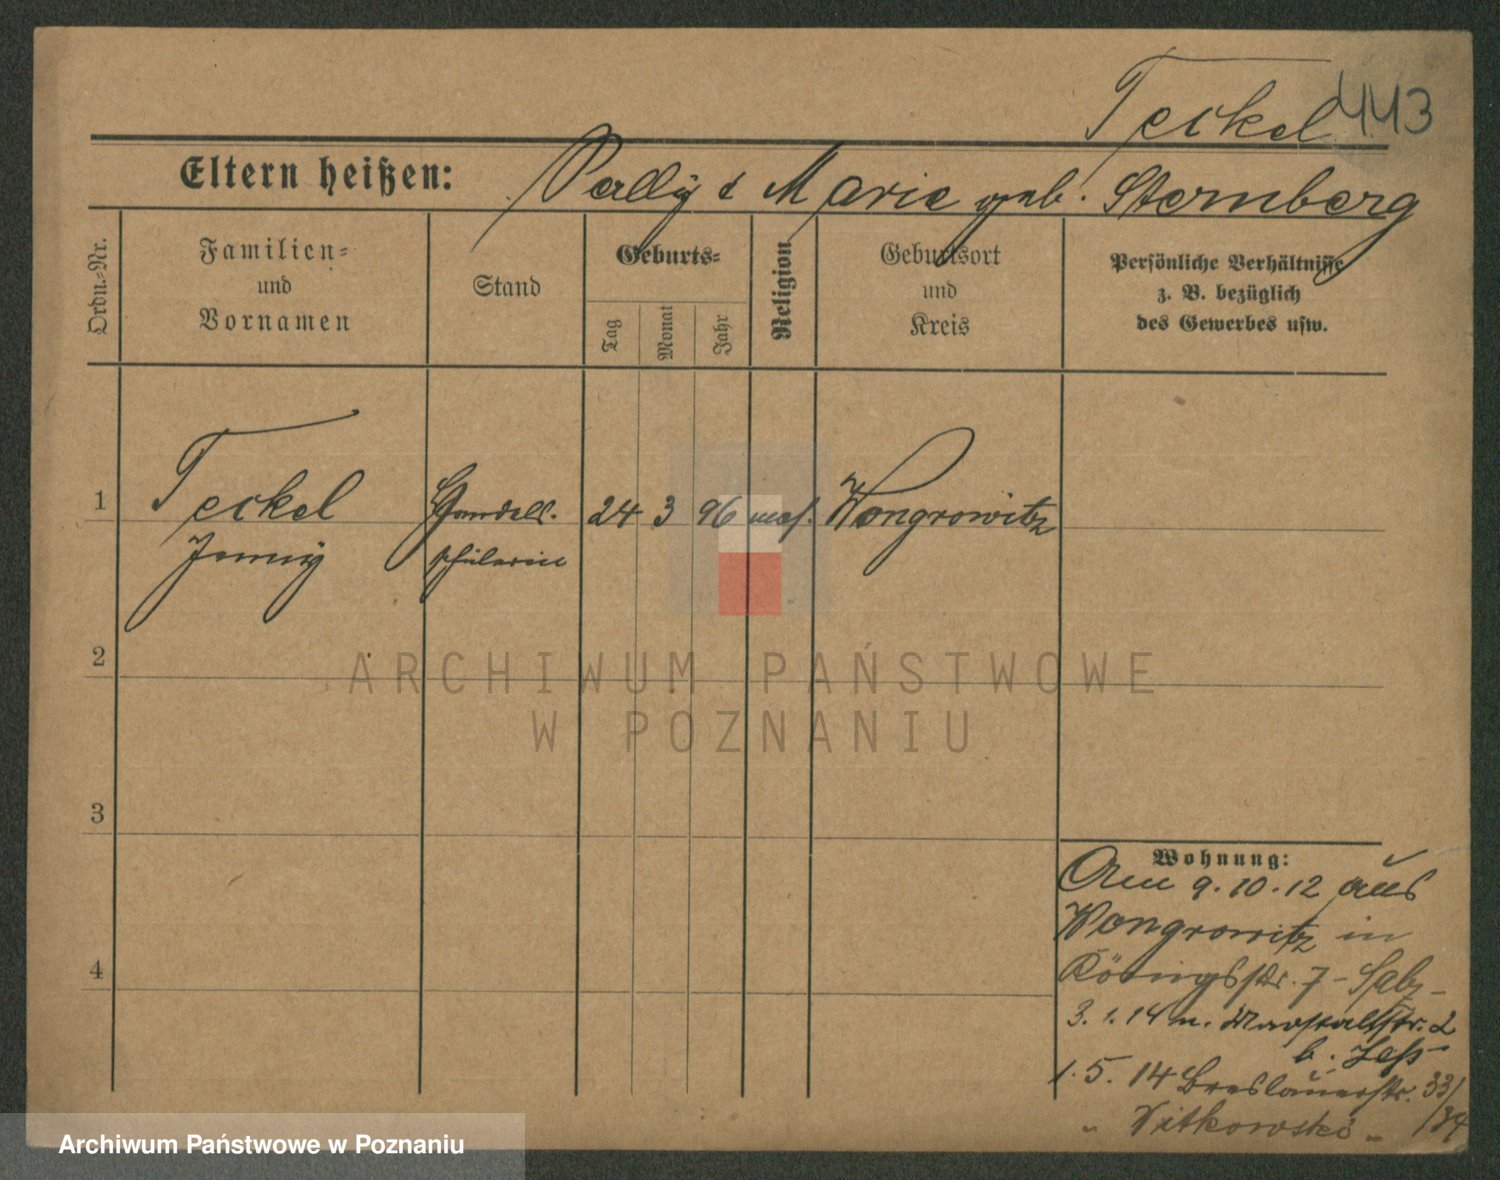 Teckel 443
Eltern heißen: & Marie geb. Sternberg
Ordn.-Nr.
Familien-
und
Vornamen
Stand
Geburts-
Tag
Monat
Jahr
Religion
Geburtsort
und
Kreis
Persönliche Verhältnisse
z. B. bezüglich
des Gewerbes usw.
1 Teckel Handels- 24 3 96 mos. Wongrowitz
Jenny schülerin
2
3
4
ARCHIWUM PAŃSTWOWE
W POZNANIU
Wohnung:
Am 9.10.12 aus
Wongrowitz in
Königsstr. 7-
3.1.14 n. Marstallstr. 2
b.
1.5.14 Breslauerstr. 33/
/34
" Witkowski "
Archiwum Państwowe w Poznaniu